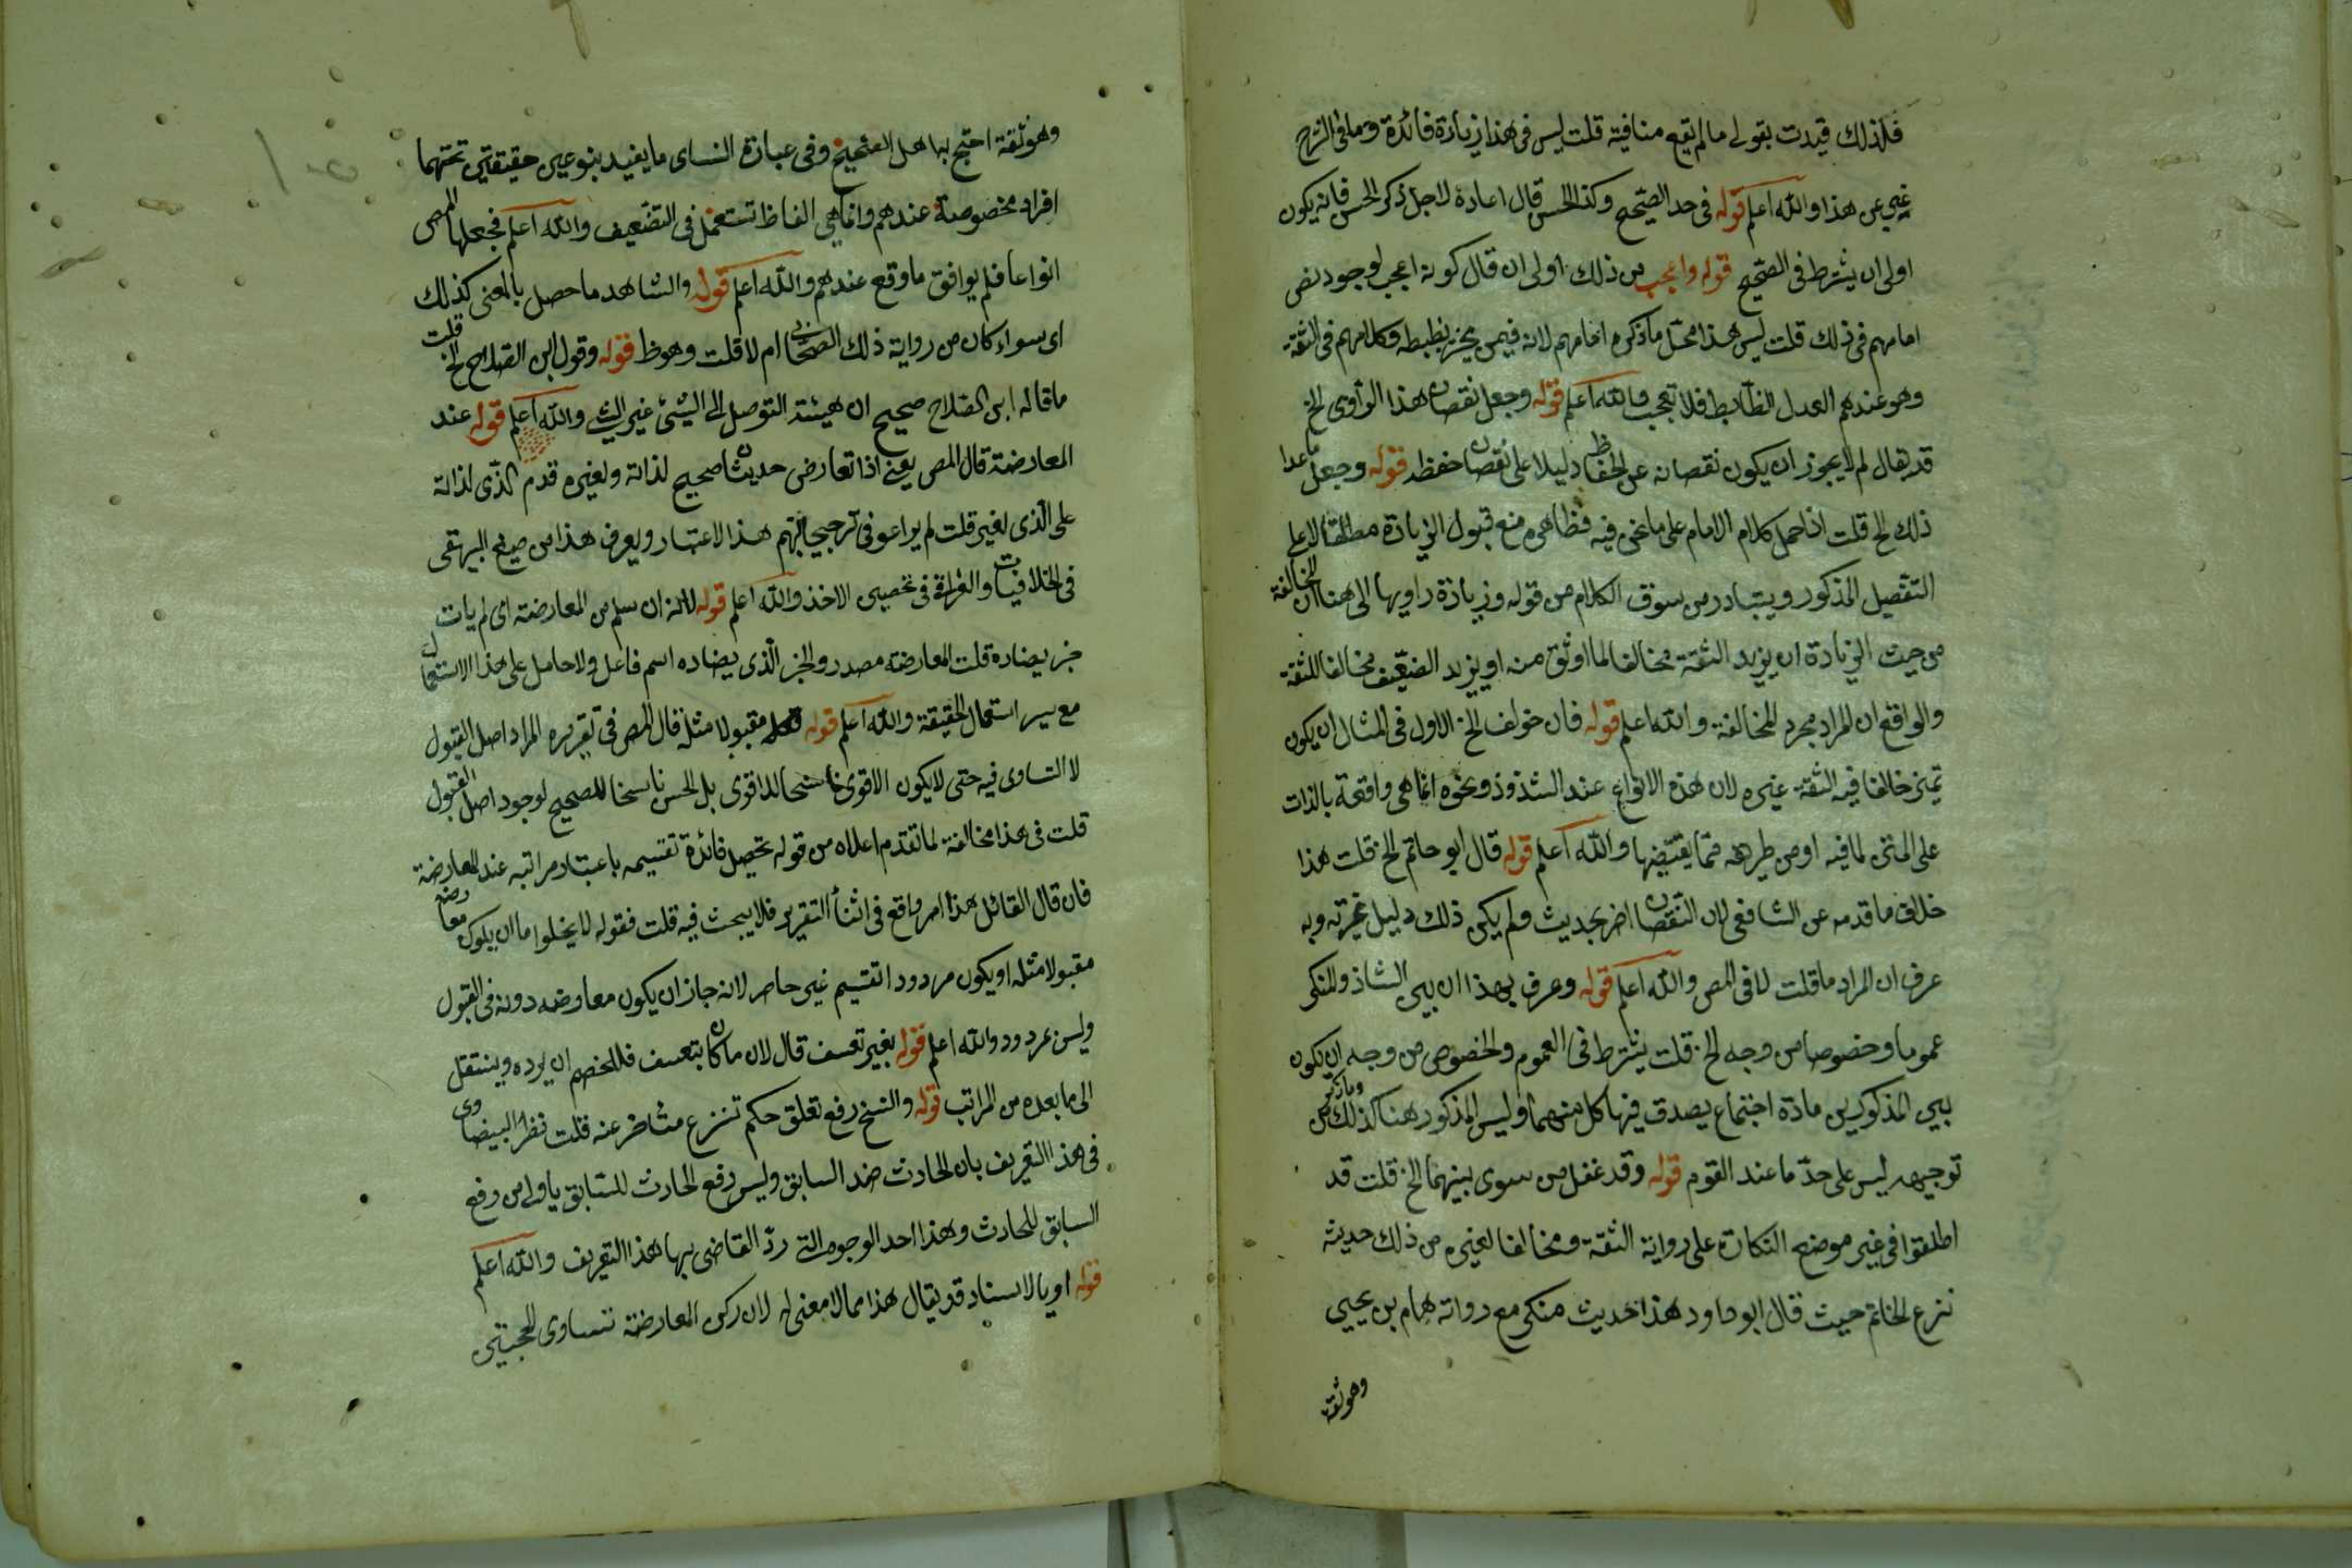 فلذلك قيدت بقولى مالم يقع منافية قلت ليس فى هذا زيادة فائدة وما فى الشرح
غنى عن هذا والله اعلم قوله فى حد الصحيح وكذا الحسن قال اعادة لاجل ذكر الحسن فانه يكون
اولى ان يشترط فى الصحيح قوله واعجب من ذلك اولى ان قال كونه اعجب لوجود نص
امامهم فى ذلك قلت ليس هذا محل ما ذكره امامهم لانه فيمن يختبر ضبطه وكلامهم فى الثقة
وهو عندهم العدل الضابط فلا تعجب والله اعلم قوله وجعل نقصان هذا الراوى الخ
قد يقال لم لا يجوز ان يكون نقصانه عن الحفاظ دليلا على نقصان حفظه قوله وجعل ما عدا
ذلك الخ قلت اذا حمل كلام الامام على ما نحن فيه فظاهره منع قبول الزيادة مطلقا لا على
التفصيل المذكور ويتبادر من سوق الكلام من قوله وزيادة راويها الى هنا ان المخالفة
من حيث الزيادة ان يزيد الثقة مخالفا لما اوثق منه او يزيد الضعيف مخالفا للثقة
والواقع ان المراد مجرد المخالفة والله اعلم قوله فان خولف الخ الاولى فى المثال ان يكون
بمتن خالفا فيه الثقة غيره لان هذه الانواع عند الشذوذ ونحوه انما هى واقعة بالذات
على المتن لما فيه او من طريقه مما يقتضيها والله اعلم قوله قال ابو حاتم الخ قلت هذا
خلاف ما قدمه عن الشافعى لان النقصان اضر بحديثه ولم يكن ذلك دليل تحريه وبه
عرف ان المراد ما قلت لا فى المص والله اعلم قوله وعرف بهذا ان بين الشاذ والمنكر
عموما وخصوصا من وجه الخ قلت يشترط فى العموم والخصوص من وجه ان يكون
بين المذكورين مادة اجتماع يصدق فيها كل منهما وليس المذكور هنا كذلك وما ذكر من
توجيهه ليس على حدّ ما عند القوم قوله وقد غفل من سوى بينهما الخ قلت قد
اطلقوا فى غير موضع النكارة على رواية الثقة ومخالفا لغيره من ذلك حديث
نزع الخاتم حيث قال ابو داود هذا حديث منكر مع رواته همام بن يحيى
وهو ثقة
وهو ثقة احتج بها اهل الصحيح وفى عبارة النسائ ما يفيد بنوعين حقيقتين تحتهما
افراد مخصوصة عندهم وانما هى الفاظ تستعمل فى التضعيف والله اعلم فجعلها المص
انواعا فلم يوافق ما وقع عندهم والله اعلم قوله والشاهد ما حصل بالمعنى كذلك
اى سواء كان من رواية ذلك الصحابى ام لا قلت وهو ظ قوله وقول ابن الصلاح الخ قلت
ما قاله ابن الصلاح صحيح ان هيئة التوصل الى الشئ غير الشئ والله اعلم قوله عند
المعارضة قال المص يعنى اذا تعارض حديثان صحيح لذاته ولغيره قدم الذى لذاته
على الذى لغيره قلت لم يراعو فى ترجيحاتهم هذا الاعتبار ويعرف هذا من صنيع البيهقى
فى الخلافيات والغزالى فى تحصين الاخذ والله اعلم قوله لانه ان سلم من المعارضة اى لم يات
خبر يضاده قلت المعارضة مصدر والخبر الذى يضاده اسم فاعل ولا حامل على هذا الاستعمال
مع يسر استعمال الحقيقة والله اعلم قوله مقبولا مثله قال المص فى تقريره المراد اصل القبول
لا التساوى فيه حتى لا يكون الاقوى ناسخا للاقوى بل الحسن ناسخا للصحيح لوجود اصل القبول
قلت فى هذا مخالفة لما تقدم اعلاه من قوله تحصل فائدة تقسيمه باعتبار مراتبه عند المعارضة
فان قال القائل هذا امر واقع فى اثنأ التقرير فلا يبحث فيه قلت فقوله لا يخلوا ما ان يكون معارضه
مقبولا مثله او يكون مردود التقسيم غير حاصر لانه جاز ان يكون معارضه دونه فى القبول
وليس بمردود والله اعلم قوله بغير تعسف قال لان ما كان بتعسف فللخصم ان يرده وينتقل
الى ما بعده من المراتب قوله والنسخ رفع تعلق حكم شرع متأخر عنه قلت نظر البيضاوى
فى هذا التعريف بان الحادث ضد السابق وليس رفع الحادث للسابق باولى من رفع
السابق للحادث وهذا احد الوجوه التى ردّ القاضى بها هذا التعريف والله اعلم
قوله او بالاسناد قد يقال هذا مما لا معنى له لان ركن المعارضة تساوى الحجتين